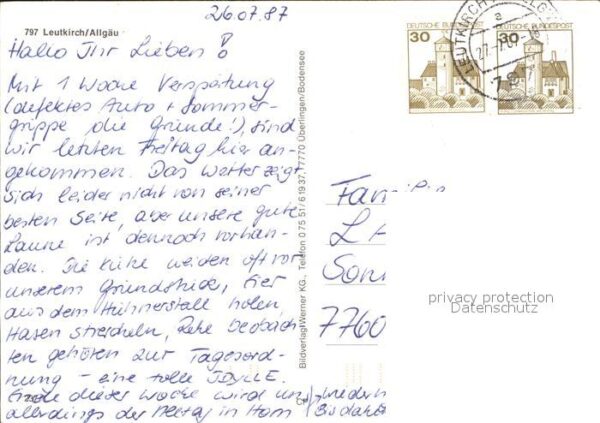 26.07.87
797 Leutkirch/Allgäu
Hallo Ihr Lieben!
Mit 1 Woche Verspätung
(defektes Auto + Sommer-
grippe die Gründe!), sind
wir letzten Freitag hier an-
gekommen. Das Wetter zeigt
sich leider nicht von seiner
besten Seite, aber unsere gute
Laune ist dennoch vorhan-
den. Die Kühe weiden oft vor
unserem Grundstück, Eier
aus dem Hühnerstall holen,
Hasen streicheln, Rehe beobach-
ten gehören zur Tagesord-
nung – eine tolle IDYLLE.
Ende dieser Woche wird uns
allerdings der Alltag in
Bis dahin
Bildverlag Werner KG., Telefon 0 75 51/6 19 37, 7770 Überlingen/Bodensee
DEUTSCHE BUNDESPOST
30
DEUTSCHE BUNDESPOST
30
LEUTKIRCH
a
797
Fam
L
Son
7760
privacy protection
Datenschutz